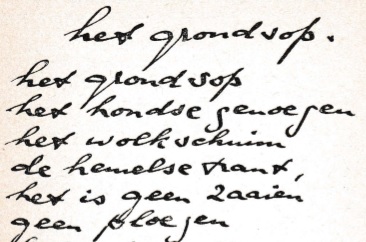 het grondsop.
het grondsop
het hondse genoegen
het wolkschuim
de hemelse trant,
het is geen zaaien
geen ploegen